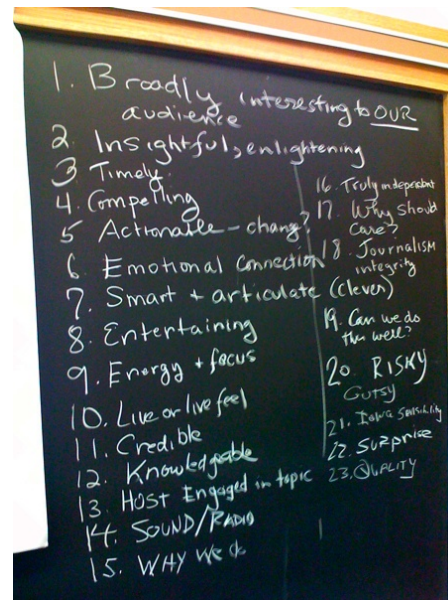 1. Broadly interesting to OUR
audience
2. Insightful, enlightening
3 Timely.
4. Compelling
5 Actionable - change?
6. Emotional Connection
7. Smart + articulate (clever)
8. Entertaining
9. Energy + focus
10. Live or live feel
11. Credible
12. Knowledgeable
13. HOST Engaged in topic
14. SOUND/RADIO
15. WHY We
16. Truly independent
17. Why should
Care?
18. Journalism
integrity
19. Can we do
this well?
20. RISKY
GUTSY
21. Iowa sensibility
22. Surprise
23. QUALITY